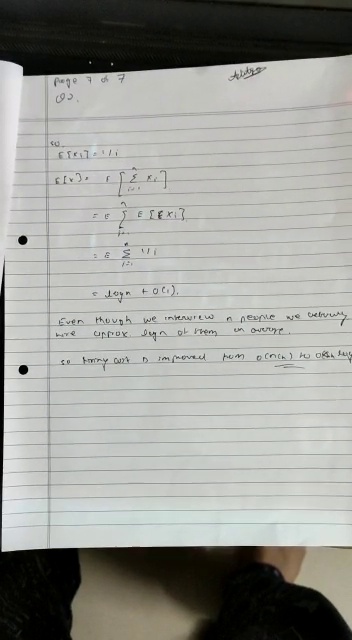 Page 7 of 7
Q2.
so
E[xi] = 1/i
E[x] = E [ n Σ i=1 xi ]
= E n Σ i=1 E[xi]
= E n Σ i=1 1/i
= logn + O(1).
Even though we interview n people we
hire approx logn of them on average.
so hiring cost is improved from O(nCh) to